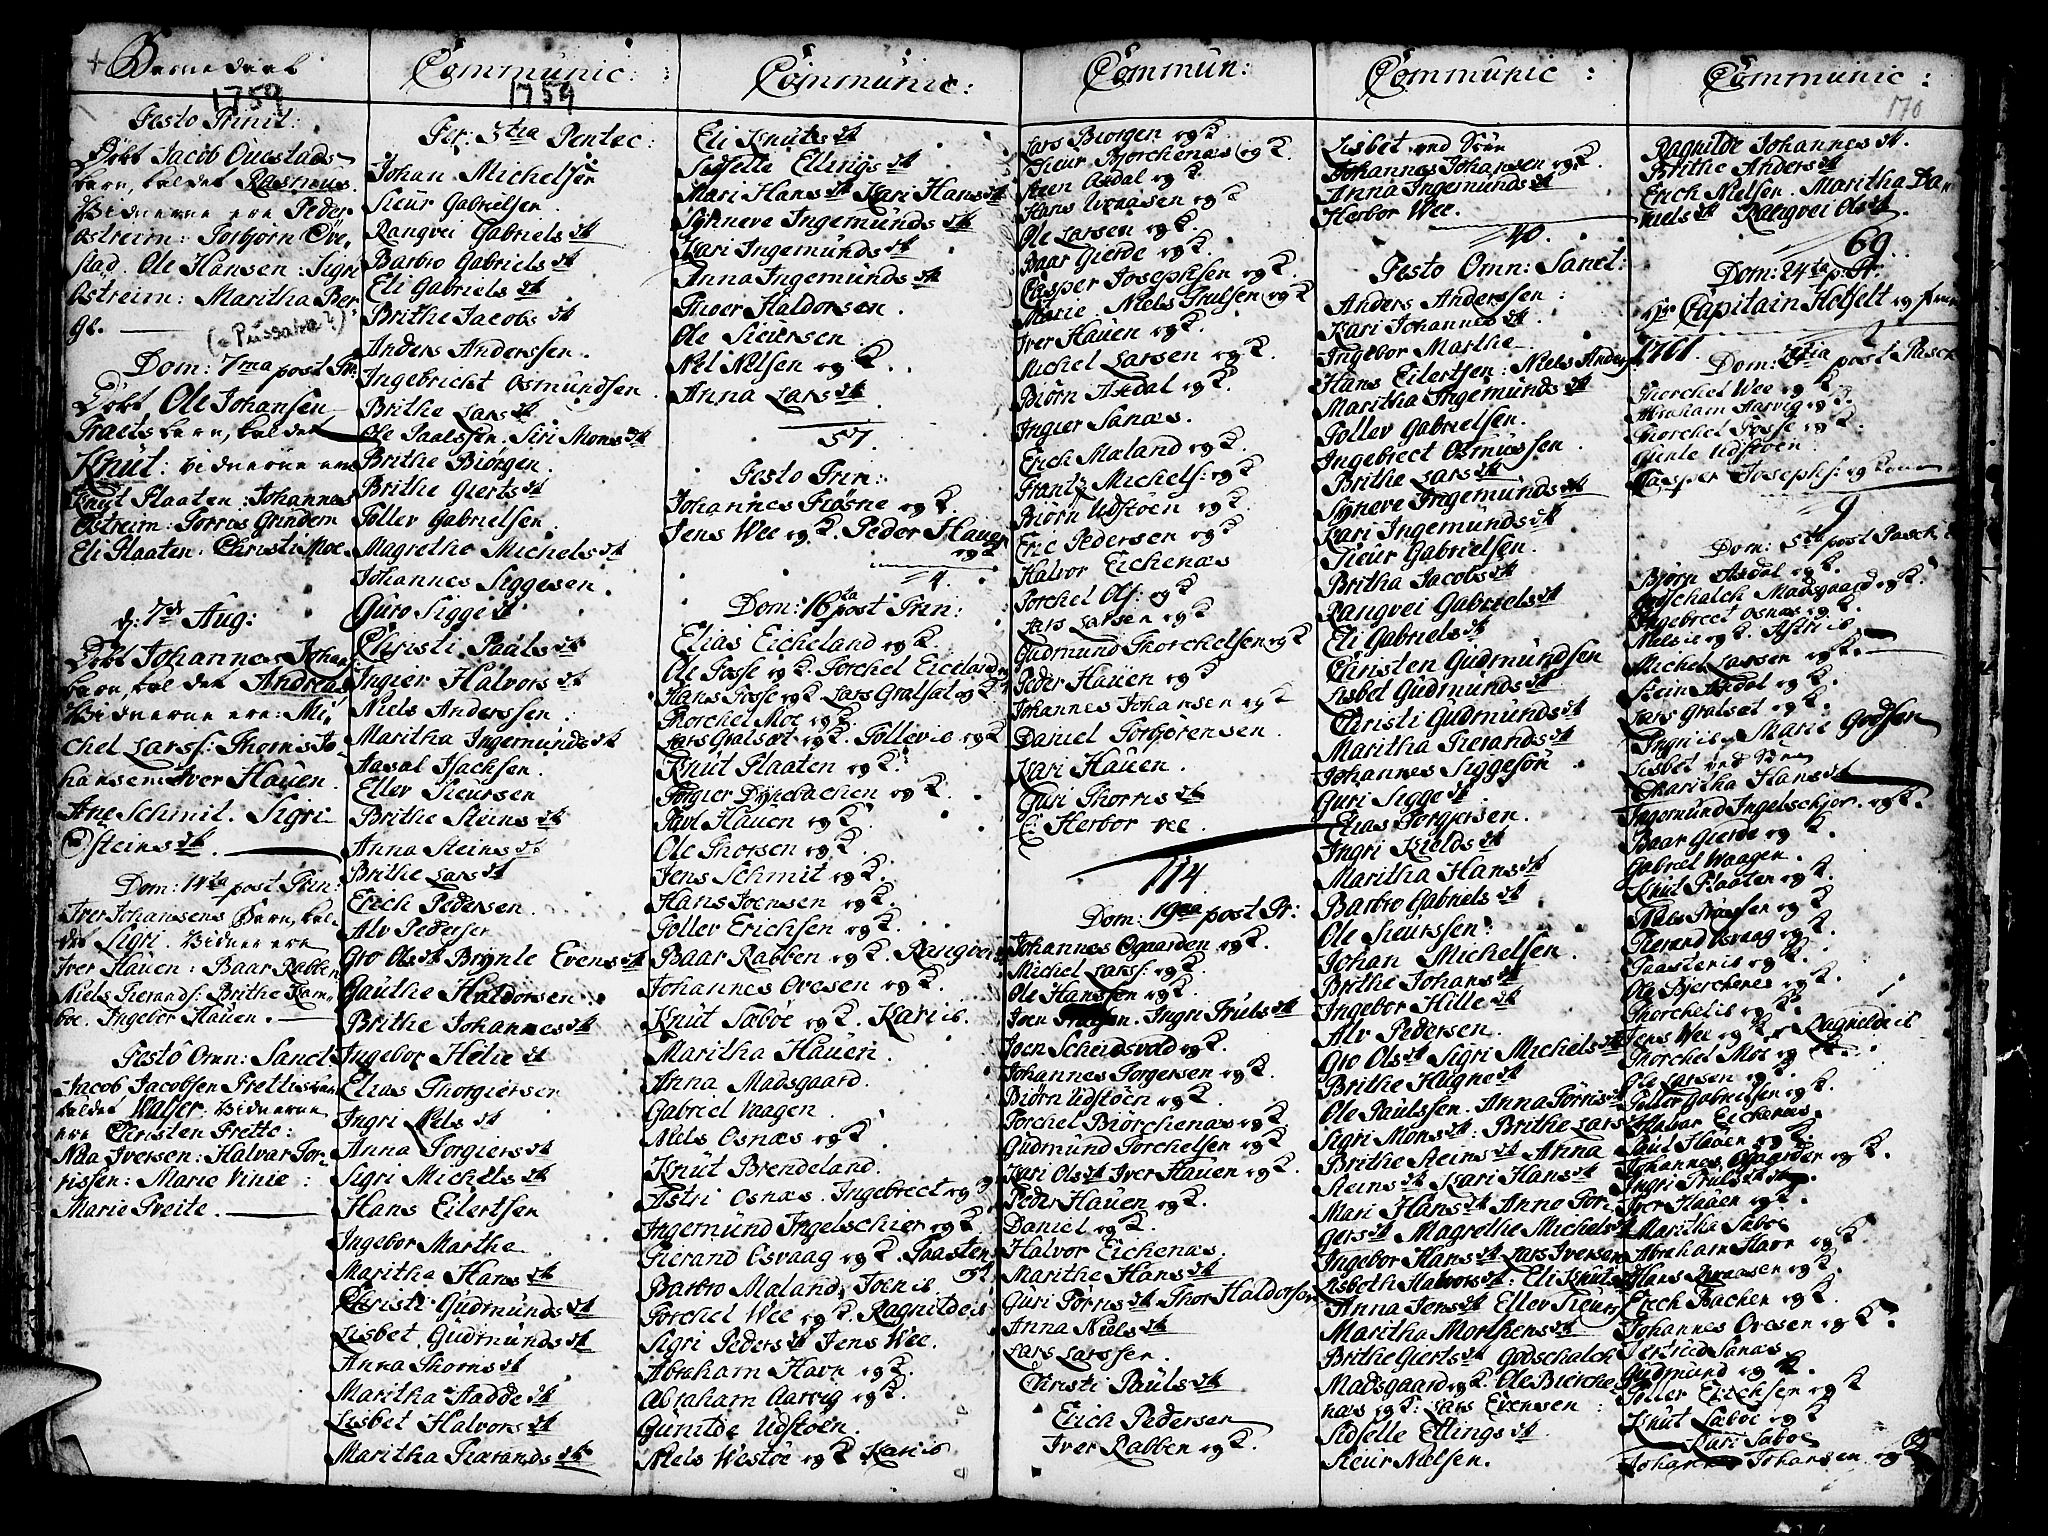 Communic:
1759
Festo Trinit:
Døbt Jacob Questads
barn, kaldet Rasmus.
Vidnerne ere Peder
Østreim: Torbjørn Qve,
stad. Ole Hansen: Sigri
Østreim: Maritha Ber
ge.
Dom: 7ma post Tr:
Døbt Ole Johansen
Traets barn, kaldet
Knut: Vidnerne ere
Knut Plaaten: Johannes
Østreim: Torris Grindem
Eli Plaaten: Christi Moe.
d: 7de Aug:
Døbt Johannes Johans
barn, kaldet Andreas
Vidnerne ere: Mi,
chel Larss: Thorris Jo
hansen: Iver Hauen
Ane Schmit. Sigri
Østeins dt.
Dom: 14ta post Trin:
Iver Johansens Barn, kal
det Sigri. Vidner ere
Iver Hauen: Baar Rabben
Niels Tierands: Brithe Ram
boe. Ingebor Hauen.
Festo Omn: Sanct
Jacob Jacobsen Prettis barn
kaldet Walser. Vidnerne
ere Christen Prette:
Nila Iversen: Halvar Tor
rissen: Marie Vinie:
Marie Preite.
Communic:
1759
Fer: 3tia Pentec:
Johan Michelsen
Sieur Gabrielsen
Rangvei Gabriels dt
Barbro Gabriels dt
Eli Gabriels dt
Brithe Jacobs dt
Anders Anderssen.
Ingebricht Osmundsen
Brithe Lars dt
Ole Paalssen. Siri Mons dt
Brithe Biørgen.
Brithe Gierts dt
Tollev Gabrielsen.
Magrethe Michels dt
Johannes Siggesen.
Guro Sigge dt
Christi Pauls dt
Ingier Halvors dt
Niels Anderssen.
Maritha Ingemunds dt
Aasal Isachsen.
Ellev Sieursen
Brithe Steins dt
Anna Steins dt
Brithe Lars dt
Erich Pedersen.
Alv Pedersen
Gro Ols dt Brynle Evens dt
Gauthe Haldorsen
Brithe Johannes dt
Ingebor Helie dt
Elias Thorgiersen
Ingri Niels dt
Anna Torgiers dt
Sigri Michels dt
Hans Eilertsen
Ingebor Marthe
Maritha Hans dt
Christi Gudmunds dt
Lisbet Gudmunds dt
Anna Thorris dt
Maritha Hadde dt
Lisbet Halvors dt
Maritha Tierands dt
Communic:
Eli Knuts dt
Sidselle Ellings dt
Mari Hans dt Kari Hans dt
Synneve Ingemunds dt
Kari Ingemunds dt
Anna Ingemunds dt
Thoer Haldorsen.
Ole Sieursen.
Niel Nilsen og K.
Anna Lars dt
57.
Festo Trin:
Johannes Frøsne og K.
Jens Wee og K. Peder Hauen
og K
4.
Dom: 16ta post Trin:
Elias Eicheland og K
Ole Fosse og K. Torchel Eiceland
Hans Fosse og K Lars Gratsat og K
Thorchel Moe og K.
Lars Gratsæt og K. Tollevie og K
Knut Plaaten og K.
Torgier Dynevaches og K.
Paul Hauen og K.
Ole Thorsen og K.
Jens Schmit og K.
Hans Joensen og K.
Toller Erichsen og K.
Baar Rabben og K. Rangvei
Johannes Oresen og K.
Knut Sæbøe og K. Kari ib.
Maritha Hauen.
Anna Madsgaard.
Gabriel Vaagen.
Niels Osnæs og K
Knut Brendeland.
Astri Osnæs. Ingebrect og
Ingemund Ingelschier og K
Tierand Osvaag og K. Paasten
Barbro Maland. Joen ib
Torchel Wee og K. Ragnilde ib
Sigri Peders dt Jens Wee.
Abraham Havn og K
Abraham Aarvig og K.
Gunilde Udstoen.
Niels Westøe og K Kari ib
Commun:
Lars Biørgen og K.
Sieur Biørchenæs og K
Steen Asdal og K
Hans Uraasen og K
Ole Larsen og K.
Baar Gierde og K
Casper Josephsen og K.
Marie. Niels Trulsen og K
Iver Hauen og K
Michel Larsen og K.
Biørn Asdal og K.
Ingier Sanæs.
Erich Maland og K
Frantz Michels: og K
Biørn Udstøen og K
Eric Pedersen og K
Halvor Eichenæs
Torchel Ols: og K
Lars Larsen og K.
Gudmund Thorchelsen og K
Peder Hauen og K
Johannes Johansen og K
Daniel Torbørensen.
Kari Hauen.
Guri Thorris dt
Herbor Vee.
114.
Dom: 19na post Tr:
Johannes Ogaarden og K.
Michel Larss: og K.
Ole Hanssen og K.
Joen Trulsen. Ingri Truls dt
Joen Scheidsvold og K.
Johannes Torgersen og K.
Biørn Udstøen og K.
Torchel Biørchenæs og K
Gudmund Torchelsen og K
Kari Ols dt Iver Hauen og K.
Peder Hauen og K
Daniel og K.
Halvor Eichenæs.
Marithe Hans dt
Guri Torris dt Thor Haldorsen
Anna Niels dt
Lars Larssen.
Christi Pauls dt
Erich Pedersen
Iver Rabben og K.
Communic:
Lisbet ved Søen
Johannes Johansen og K.
Anna Ingemunds dt
Herbor Wee.
40.
Festo Omn: Sanct:
Anders Anderssen:
Kari Johannes dt
Ingebor Marthe
Hans Eilertsen: Niels Anders
Maritha Ingemunds dt
Tollev Gabrielsen.
Ingebrect Osmussen.
Brithe Lars dt
Syneve Ingemunds dt
Kari Ingemunds dt
Sieur Gabrielsen.
Britha Jacobs dt
Rangvei Gabriels dt
Eli Gabriels dt
Christen Gudmundsen
Lisbet Gudmunds dt
Christi Gudmunds dt
Maritha Tierands dt
Johannes Siggesøn
Guri Sigge dt
Elias Torgersen.
Ingri Kields dt
Maritha Hans dt
Barbro Gabriels dt
Ole Sieurssen.
Johan Michelsen.
Brithe Johans dt
Ingebor Hille dt
Alv Pedersen.
Gro Ols dt Sigri Michels dt
Brithe Hugne dt
Ole Paulssen. Anna Torris dt
Sigri Mons dt: Brithe Lars
Brithe Steins dt Anna
Steins dt Kari Hans dt
Mari Hans dt Anne Tor
gers dt Magrethe Michels dt
Ingebor Hans dt Lars Iversen
Lisbeth Halvors dt: Eli Knuts
Anna Jens dt Ellev Sieurs
Maritha Morthens dt
Brithe Gierts dt Godschalch
Madsgaard og K. Ole Bierche
næs og K: Lars Evensen:
Sidselle Ellings dt.
Sieur Nielsen.
Communic:
170
Ragnilde Johannes dt.
Brithe Anders dt
Erich Nielsen. Maritha Da
niels dt Rangvei Ols dt
69.
Dom: 24ta p. Tr.
Hr Capitain Hetselt og frue
2
1761.
Dom: 4tia post Pasch
Thorchel Wee og K.
Abraham Aarvig og K.
Thorchel Fosse og K.
Giente Udstøen.
Casper Josephs: og kone
9
Dom: 5ta post Pasch
Biørn Asdal og K.
Godschalch Madsgaard og K.
Ingebrect Osnæs og K.
Niels ib og K. Astri ib
Michel Larsen og K.
Stein Asdal og K.
Lars Gratsæt og K.
Ingri ib. Marie Godsen
Lisbet ved Søen
Maritha Hans dt
Ingemund Ingelschier. og K.
Baar Gierde og K.
Gabriel Waagen.
Knut Plaaten og K.
Niels Trulsen og K
Tierand Osvaag og K.
Paasten ib og K.
Ole Bierchenes og K.
Thorchel ib og K.
Jens Wee og K. Ragnilde ib
Thorchel Moe og K.
Ole Larsen og K.
Tollev Gabrielsen og K.
Halvar Eichenæs
Paul Hauen og K
Johannes Ogaarden og K.
Ingri Truls dt
Iver Hauen og K.
Maritha Sæbøe
Abraham Havn og K.
Hans Uraasen og K.
Erech Bachen og K.
Johannes Oresen og K.
Giertrud Sanæs
Gudmund og K.
Toller Erechsen og K
Knut Sæbøe og K
Kari Sæbøe
Johannes Johansen og K